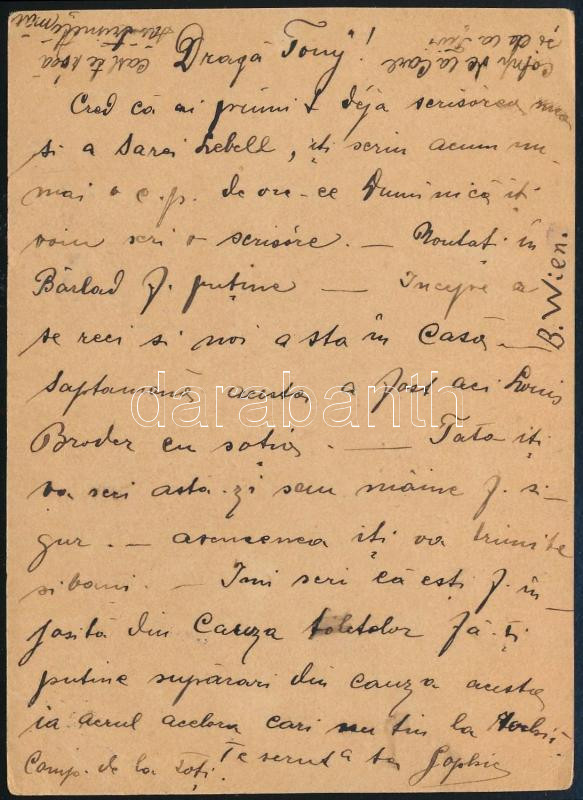 Dragă Tony!
Cred că ai primit déja scrisórea mea
si a Sarei Lebell, iți scriu acum nu-
mai o c.p. de ore-ce Duminică iți
voiu scri o scrisóre. — Noutați in
Bărlad f. puține — Incepe a
se reci si noi a sta în Casă. —
Saptamâna acesta a fost aci Louis
Broder cu soția. — Tata iți
va scri asta-zi sau mâine f. si-
gur. — asemenea iți va trimite
si bani. — Imi scri că ești f. în-
josită din Cauza toletelor fă-ți
puține supărari din cauza acesta
ia aerul acelora cari nu țin la
Te serută ta Sophie
Comp. de la toți.
B. Wien.
darabanth